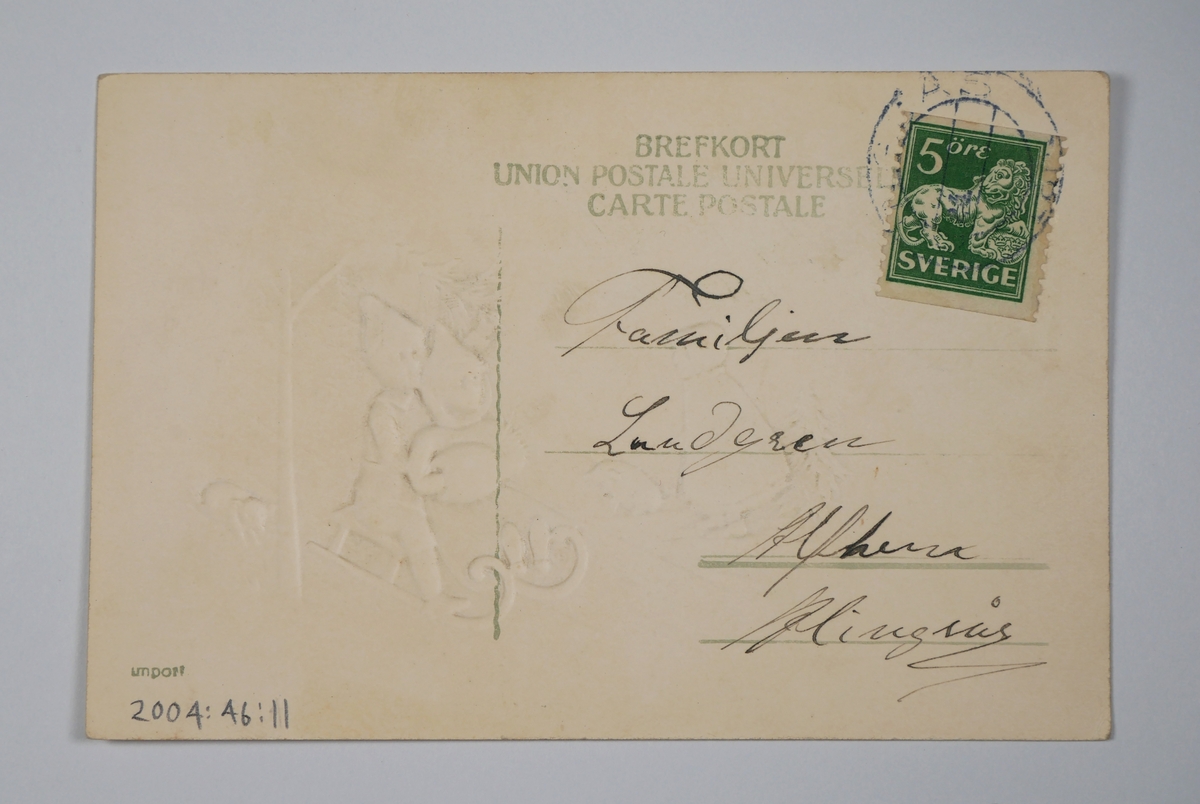 BREFKORT
UNION POSTALE UNIVERSELLE
CARTE POSTALE
5 öre
SVERIGE
Familjen
Lundgren
Alfhem
Alingsås
import
2004:46:11